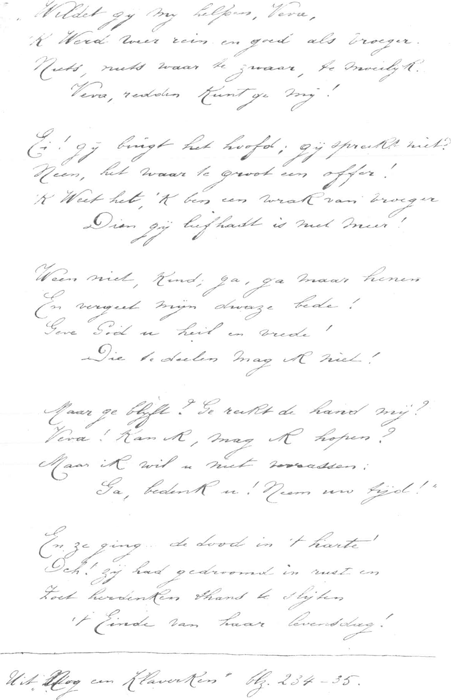 Wildet gy my helpen, Vera,
'k Werd weer rein en goed als vroeger.
Niets, niets waar te zwaar, te moeilyk.
Vera, redden kunt ge mij!
Ei! gij buigt het hoofd; gij spreekt niet?
Neen, het waar te groot een offer!
'k Weet het, 'k ben een wrak van vroeger
Dien gij liefhadt is niet meer!
Ween niet, Kind; ga, ga maar henen
En vergeet mijn dwaze bede!
Geve God u heil en vrede!
Die te deelen mag ik niet!
Maar ge blijft? Ge reikt de hand mij?
Vera! kan ik, mag ik hopen?
Maar ik wil u niet verrassen:
Ga, bedenk u! Neem uw tijd!"
En ze ging de dood in 't harte!
Och! zij had gedroomd in rust en
Zoet herdenken thans te slijten
't Einde van haar levensdag!
Uit "Nog een Klaverken" blz. 234-35.